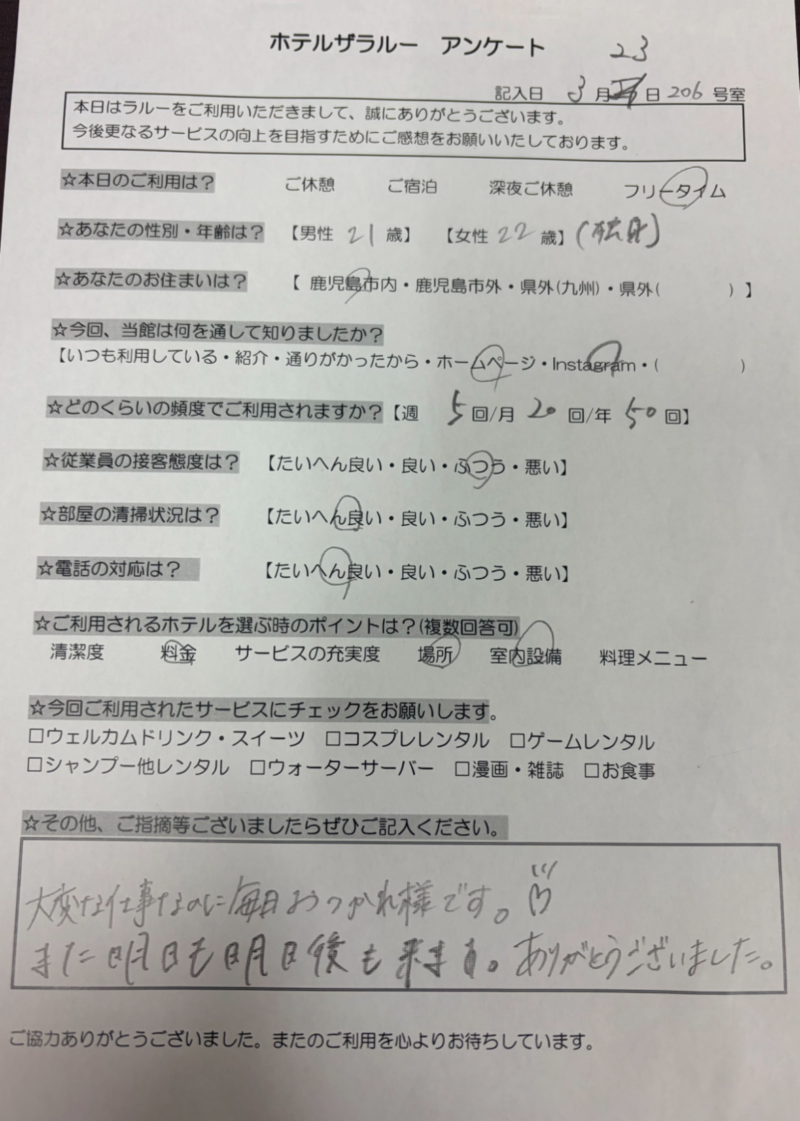 ホテルザラルー アンケート
23
記入日 3月 日 206 号室
本日はラルーをご利用いただきまして、誠にありがとうございます。
今後更なるサービスの向上を目指すためにご感想をお願いいたしております。
☆本日のご利用は？ ご休憩 ご宿泊 深夜ご休憩 フリータイム
☆あなたの性別・年齢は？ 【男性 21 歳】 【女性 22 歳】
☆あなたのお住まいは？ 【 鹿児島市内・鹿児島市外・県外(九州)・県外( ) 】
☆今回、当館は何を通して知りましたか？
【いつも利用している・紹介・通りがかったから・ホームページ・Instagram・( )
☆どのくらいの頻度でご利用されますか？【週 5回/月 20 回/年 50回】
☆従業員の接客態度は？ 【たいへん良い・良い・ふつう・悪い】
☆部屋の清掃状況は？ 【たいへん良い・良い・ふつう・悪い】
☆電話の対応は？ 【たいへん良い・良い・ふつう・悪い】
☆ご利用されるホテルを選ぶ時のポイントは？(複数回答可)
清潔度 料金 サービスの充実度 場所 室内設備 料理メニュー
☆今回ご利用されたサービスにチェックをお願いします。
□ウェルカムドリンク・スイーツ □コスプレレンタル □ゲームレンタル
□シャンプー他レンタル □ウォーターサーバー □漫画・雑誌 □お食事
☆その他、ご指摘等ございましたらぜひご記入ください。
大変な仕事なのに毎日おつかれ様です。
また明日も明日後も来ます。ありがとうございました。
ご協力ありがとうございました。またのご利用を心よりお待ちしています。